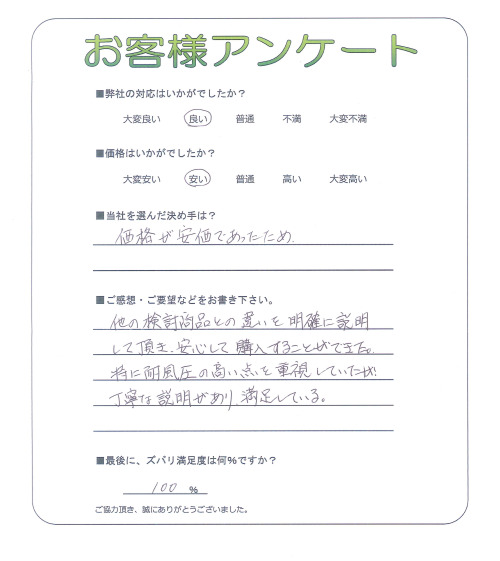 お客様アンケート
■弊社の対応はいかがでしたか？
大変良い 良い 普通 不満 大変不満
■価格はいかがでしたか？
大変安い 安い 普通 高い 大変高い
■当社を選んだ決め手は？
価格が安価であったため.
■ご感想・ご要望などをお書き下さい。
他の検討商品との違いを明確に説明
して頂き、安心して購入することができた。
特に耐風圧の高い点を重視していたが、
丁寧な説明があり、満足している。
■最後に、ズバリ満足度は何％ですか？
100 ％
ご協力頂き、誠にありがとうございました。